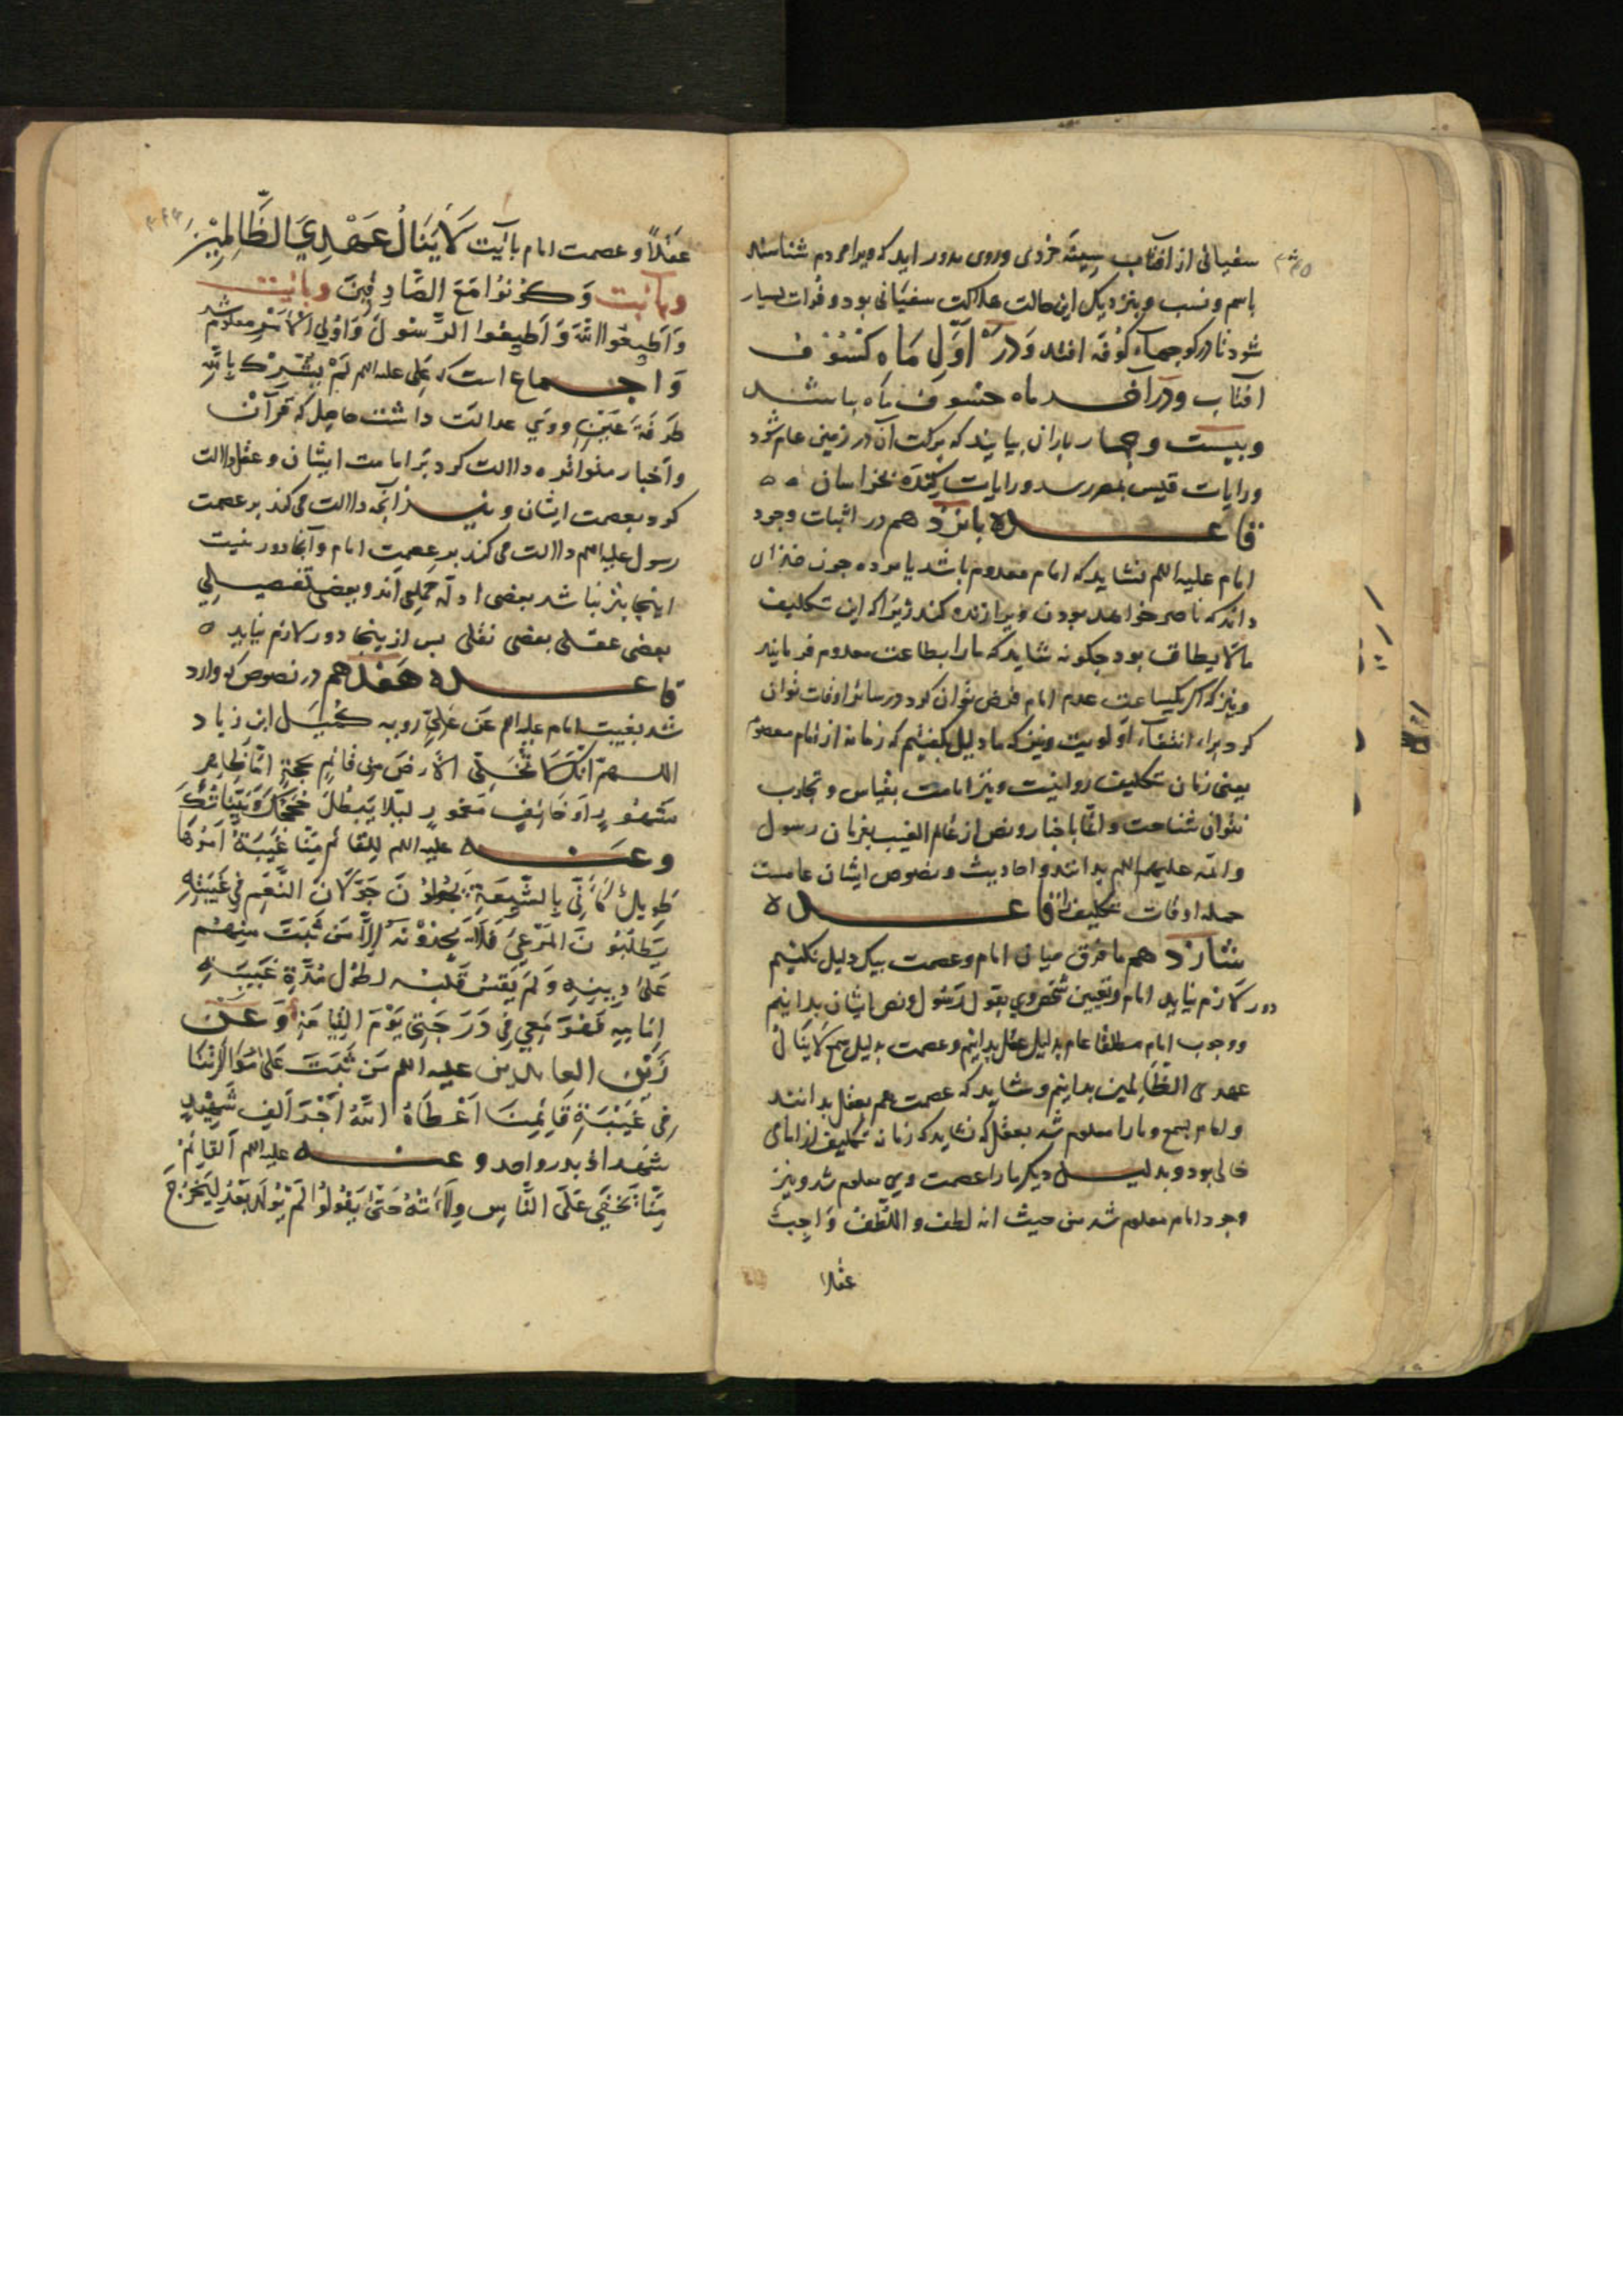 سفیانی از آفتاب سینهٔ خردی وروی بدور اید که ویرا مردم شناسند
باسم و نسب و بنزدیک این حالت علاکت سفیانی بود و فوات بسیار
شود تا در کوجهاء کوفه افتد وَدر اَوّل مَاه کسُوف
افتاب ودر آخر ماه خسُوف ماه باشد
وبیست وچهار باران بیایند که برکت آن در زمین عام شود
ورایات قیس بمصر رسد ورایات کنده بخراسان
قاعده پانزدهم در اثبات وجود
امام علیه السلم نشاید که امام معدوم باشد یا مرده جون خدای
داند که ناصر خواهد بودن ویرا زنده کند زیرا که این تکلیف
ما لا یطاق بود جکونه شاید که ما را بطاعت معدوم فرمایند
ونیز که اکر یکساعت عدم امام فرض توان کرد در سائر اوقات توان
کرد برای انتفاء اولویت ونیز که ما دلیل بکفتیم که زمانه از امام معصوم
یعنی زمان تکلیف روا نیست ونیز امامت بقیاس و تجارب
نتوان شناخت وانما باخبار ونص از عالم الغیب بزبان رسول
وائمه علیهم السلم بدانند واحادیث ونصوص ایشان عامست
جمله اوقات تکلیف را قاعده
شانزدهم ما فرق میان امام وعصمت بیک دلیل نکنیم
دور لازم نیاید امام وتعیین شخص وی بقول رسول ونص ایشان بدانیم
ووجوب امام مطلقا عام بدلیل عقل بدانیم وعصمت بدلیل سمع لا ینال
عهدی الظالمین بدانیم وشاید که عصمت هم بعقل بدانند
وامام بسمع وما را معلوم شد بعقل که نشاید که زمانه تکلیف از امامی
خالی بود وبدلیل دیکر ما را عصمت وی معلوم شد ونیز
وجود امام معلوم شد من حیث انه لطف واللطف واجب
عقلا
عَقلاً وعصمت امام بآیت لَا یَنَالُ عَهْدِی الظَّالِمِیْن
وبآیت وَکُونُوا مَعَ الصَّادِقِینَ وبآیت
وَأَطِیعُوا اللّٰهَ وَأَطِیعُوا الرَّسُولَ وَأُولِی الْأَمْرِ معلوم شد
وَاجماع است که عَلی علیه السلم لَمْ یُشْرِکْ بِاللّٰهِ
طَرفَةَ عَیْنٍ ووی عدالت داشت حاصل که قرآن
وأخبار متواتره دلالت کرد بَر امامت ایشان وعقل دلالت
کرد بعصمت ایشان ونیز آنچه دلالت می کند بر عصمت
رسول علیه السلم دلالت می کند بر عصمت امام وآنجا دور نیست
اینجا نیز نباشد بعضی ادله جملی اند وبعضی تفصیلی
بعضی عقلی بعضی نقلی پس از ینجا دور لازم نیاید
قاعده هفدهم در نصوص که وارد
شد بغیبت امام علیه السلم عَن عَلِیٍّ رویه کُمَیل ابن زیاد
اللهم انک لا تخلی الارض من قائم بحجة اما ظاهر
مشهور او خائف مغمور لیلا یبطل حججک وبیناتک
وعنه علیه السلم للقائم منا غیبة امدها
طویل کأنی بالشیعة یجولون جولان النعم فی غیبته
یطلبون المرعی فلا یجدونه الا من ثبت منهم
علی دینه ولم یقس قلبه لطول مدة غیبة
امامه فهو معی فی درجتی یوم القیامة وعن
زین العابدین علیه السلم من ثبت علی موالاتنا
فی غیبة قائمنا اعطاه الله اجر الف شهید
شهداء بدر واحد وعنه علیه السلم القائم
منا تخفی علی الناس ولادته حتی یقولوا لم یولد بعد لیخرج